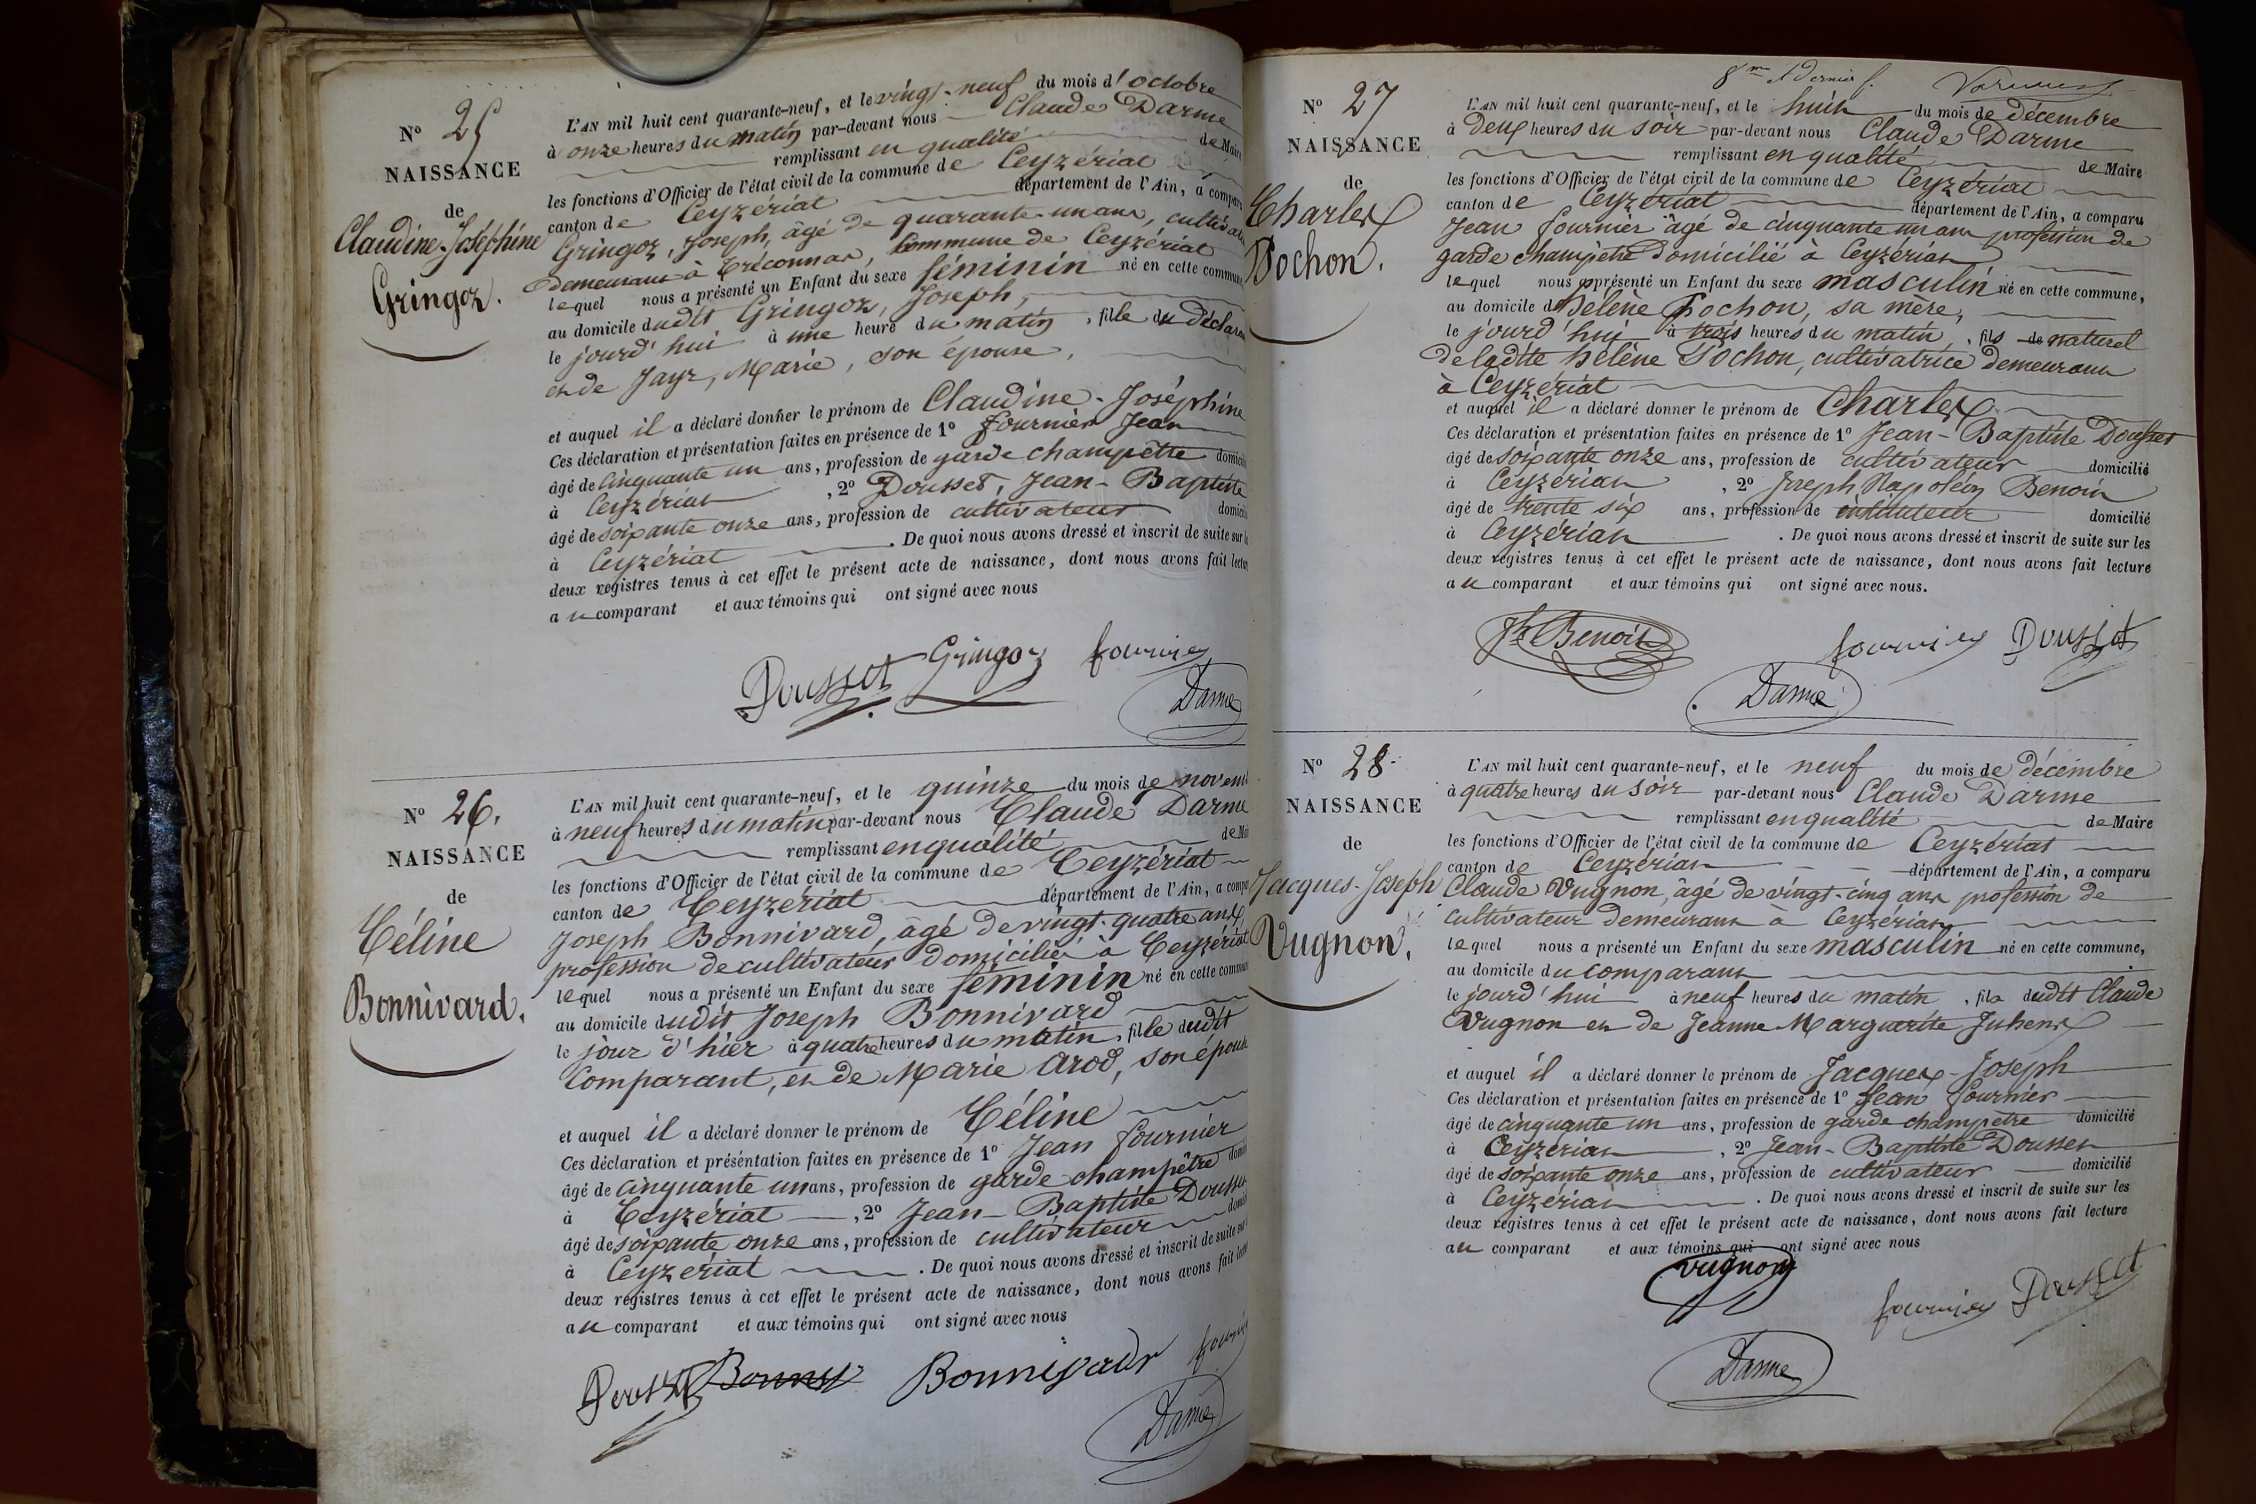 N° 25
NAISSANCE
de
Claudine-Joséphine
Gringoz.
L'AN mil huit cent quarante-neuf, et le vingt-neuf du mois d'octobre
à onze heures du matin par-devant nous Claude Darme
remplissant en qualité de Maire
les fonctions d'Officier de l'état civil de la commune de Ceyzériat
canton de Ceyzériat département de l'Ain, a comparu
Gringoz, Joseph, âgé de quarante-un ans, cultivat
demeurant à Tréconnas, Commune de Ceyzériat
lequel nous a présenté un Enfant du sexe féminin né en cette commune
au domicile dudit Gringoz, Joseph,
le jourd'hui à une heure du matin, fille du déclarant
et de Jayr, Marie, son épouse,
et auquel il a déclaré donner le prénom de Claudine-Joséphine
Ces déclaration et présentation faites en présence de 1° Fournier Jean
âgé de cinquante un ans, profession de garde champêtre domicili
à Ceyzériat, 2° Dousset, Jean-Baptiste
âgé de soixante onze ans, profession de cultivateur domicili
à Ceyzériat. De quoi nous avons dressé et inscrit de suite sur le
deux registres tenus à cet effet le présent acte de naissance, dont nous avons fait lectur
au comparant et aux témoins qui ont signé avec nous
Dousset Gringoz fournier
Darme
N° 26.
NAISSANCE
de
Céline
Bonnivard.
L'AN mil huit cent quarante-neuf, et le quinze du mois de novem
à neuf heures du matin par-devant nous Claude Darme
remplissant en qualité de Mai
les fonctions d'Officier de l'état civil de la commune de Ceyzériat
canton de Ceyzériat département de l'Ain, a compa
Joseph Bonnivard, âgé de vingt-quatre ans,
profession de cultivateur domicilié à Ceyzériat
lequel nous a présenté un Enfant du sexe féminin né en cette commun
au domicile dudit Joseph Bonnivard
le jour d'hier à quatre heures du matin, fille dudit
Comparant, et de Marie Arod, son épouse
et auquel il a déclaré donner le prénom de Céline
Ces déclaration et présentation faites en présence de 1° Jean fournier
âgé de cinquante un ans, profession de garde champêtre domi
à Ceyzériat, 2° Jean-Baptiste Dousse
âgé de soixante onze ans, profession de cultivateur domici
à Ceyzériat. De quoi nous avons dressé et inscrit de suite sur
deux registres tenus à cet effet le présent acte de naissance, dont nous avons fait lectu
au comparant et aux témoins qui ont signé avec nous
Dousset Bonnivard fourni
Darme
8me et dernier f.
N° 27
NAISSANCE
de
Charles
Pochon.
L'AN mil huit cent quarante-neuf, et le huit du mois de décembre
à deux heures du soir par-devant nous Claude Darme
remplissant en qualité de Maire
les fonctions d'Officier de l'état civil de la commune de Ceyzériat
canton de Ceyzériat département de l'Ain, a comparu
Jean fournier âgé de cinquante un ans profession de
garde champêtre domicilié à Ceyzériat
lequel nous a présenté un Enfant du sexe masculin né en cette commune,
au domicile d'hélène Pochon, sa mère,
le jourd'hui à trois heures du matin, fils de naturel
de ladite hélène Pochon, cultivatrice demeurant
à Ceyzériat
et auquel il a déclaré donner le prénom de Charles
Ces déclaration et présentation faites en présence de 1° Jean-Baptiste Dousset
âgé de soixante onze ans, profession de cultivateur domicilié
à Ceyzériat, 2° Joseph Napoléon Benoit
âgé de trente six ans, profession de instituteur domicilié
à Ceyzériat. De quoi nous avons dressé et inscrit de suite sur les
deux registres tenus à cet effet le présent acte de naissance, dont nous avons fait lecture
au comparant et aux témoins qui ont signé avec nous.
Jh Benoit fournier Dousset
Darme
N° 28
NAISSANCE
de
Jacques-Joseph
Vugnon.
L'AN mil huit cent quarante-neuf, et le neuf du mois de décembre
à quatre heures du soir par-devant nous Claude Darme
remplissant en qualité de Maire
les fonctions d'Officier de l'état civil de la commune de Ceyzériat
canton de Ceyzériat département de l'Ain, a comparu
Claude Vugnon, âgé de vingt-cinq ans profession de
cultivateur demeurant à Ceyzériat
lequel nous a présenté un Enfant du sexe masculin né en cette commune,
au domicile du comparant
le jourd'hui à neuf heures du matin, fils dudit Claude
Vugnon et de Jeanne Marguerite
et auquel il a déclaré donner le prénom de Jacques-Joseph
Ces déclaration et présentation faites en présence de 1° Jean fournier
âgé de cinquante un ans, profession de garde champêtre domicilié
à Ceyzériat, 2° Jean-Baptiste Dousset
âgé de soixante onze ans, profession de cultivateur domicilié
à Ceyzériat. De quoi nous avons dressé et inscrit de suite sur les
deux registres tenus à cet effet le présent acte de naissance, dont nous avons fait lecture
au comparant et aux témoins qui ont signé avec nous
Vugnon
fournier Dousset
Darme